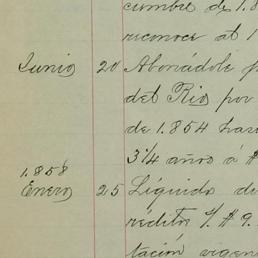 cumbre de 1.8
reconoce al 1
Junio 20 Abonádole p
del Rio por
de 1.854 has
3 1/4 años á #
1.858
Enero 25 Líquido de
réditos s/. # 9.
tación vigen